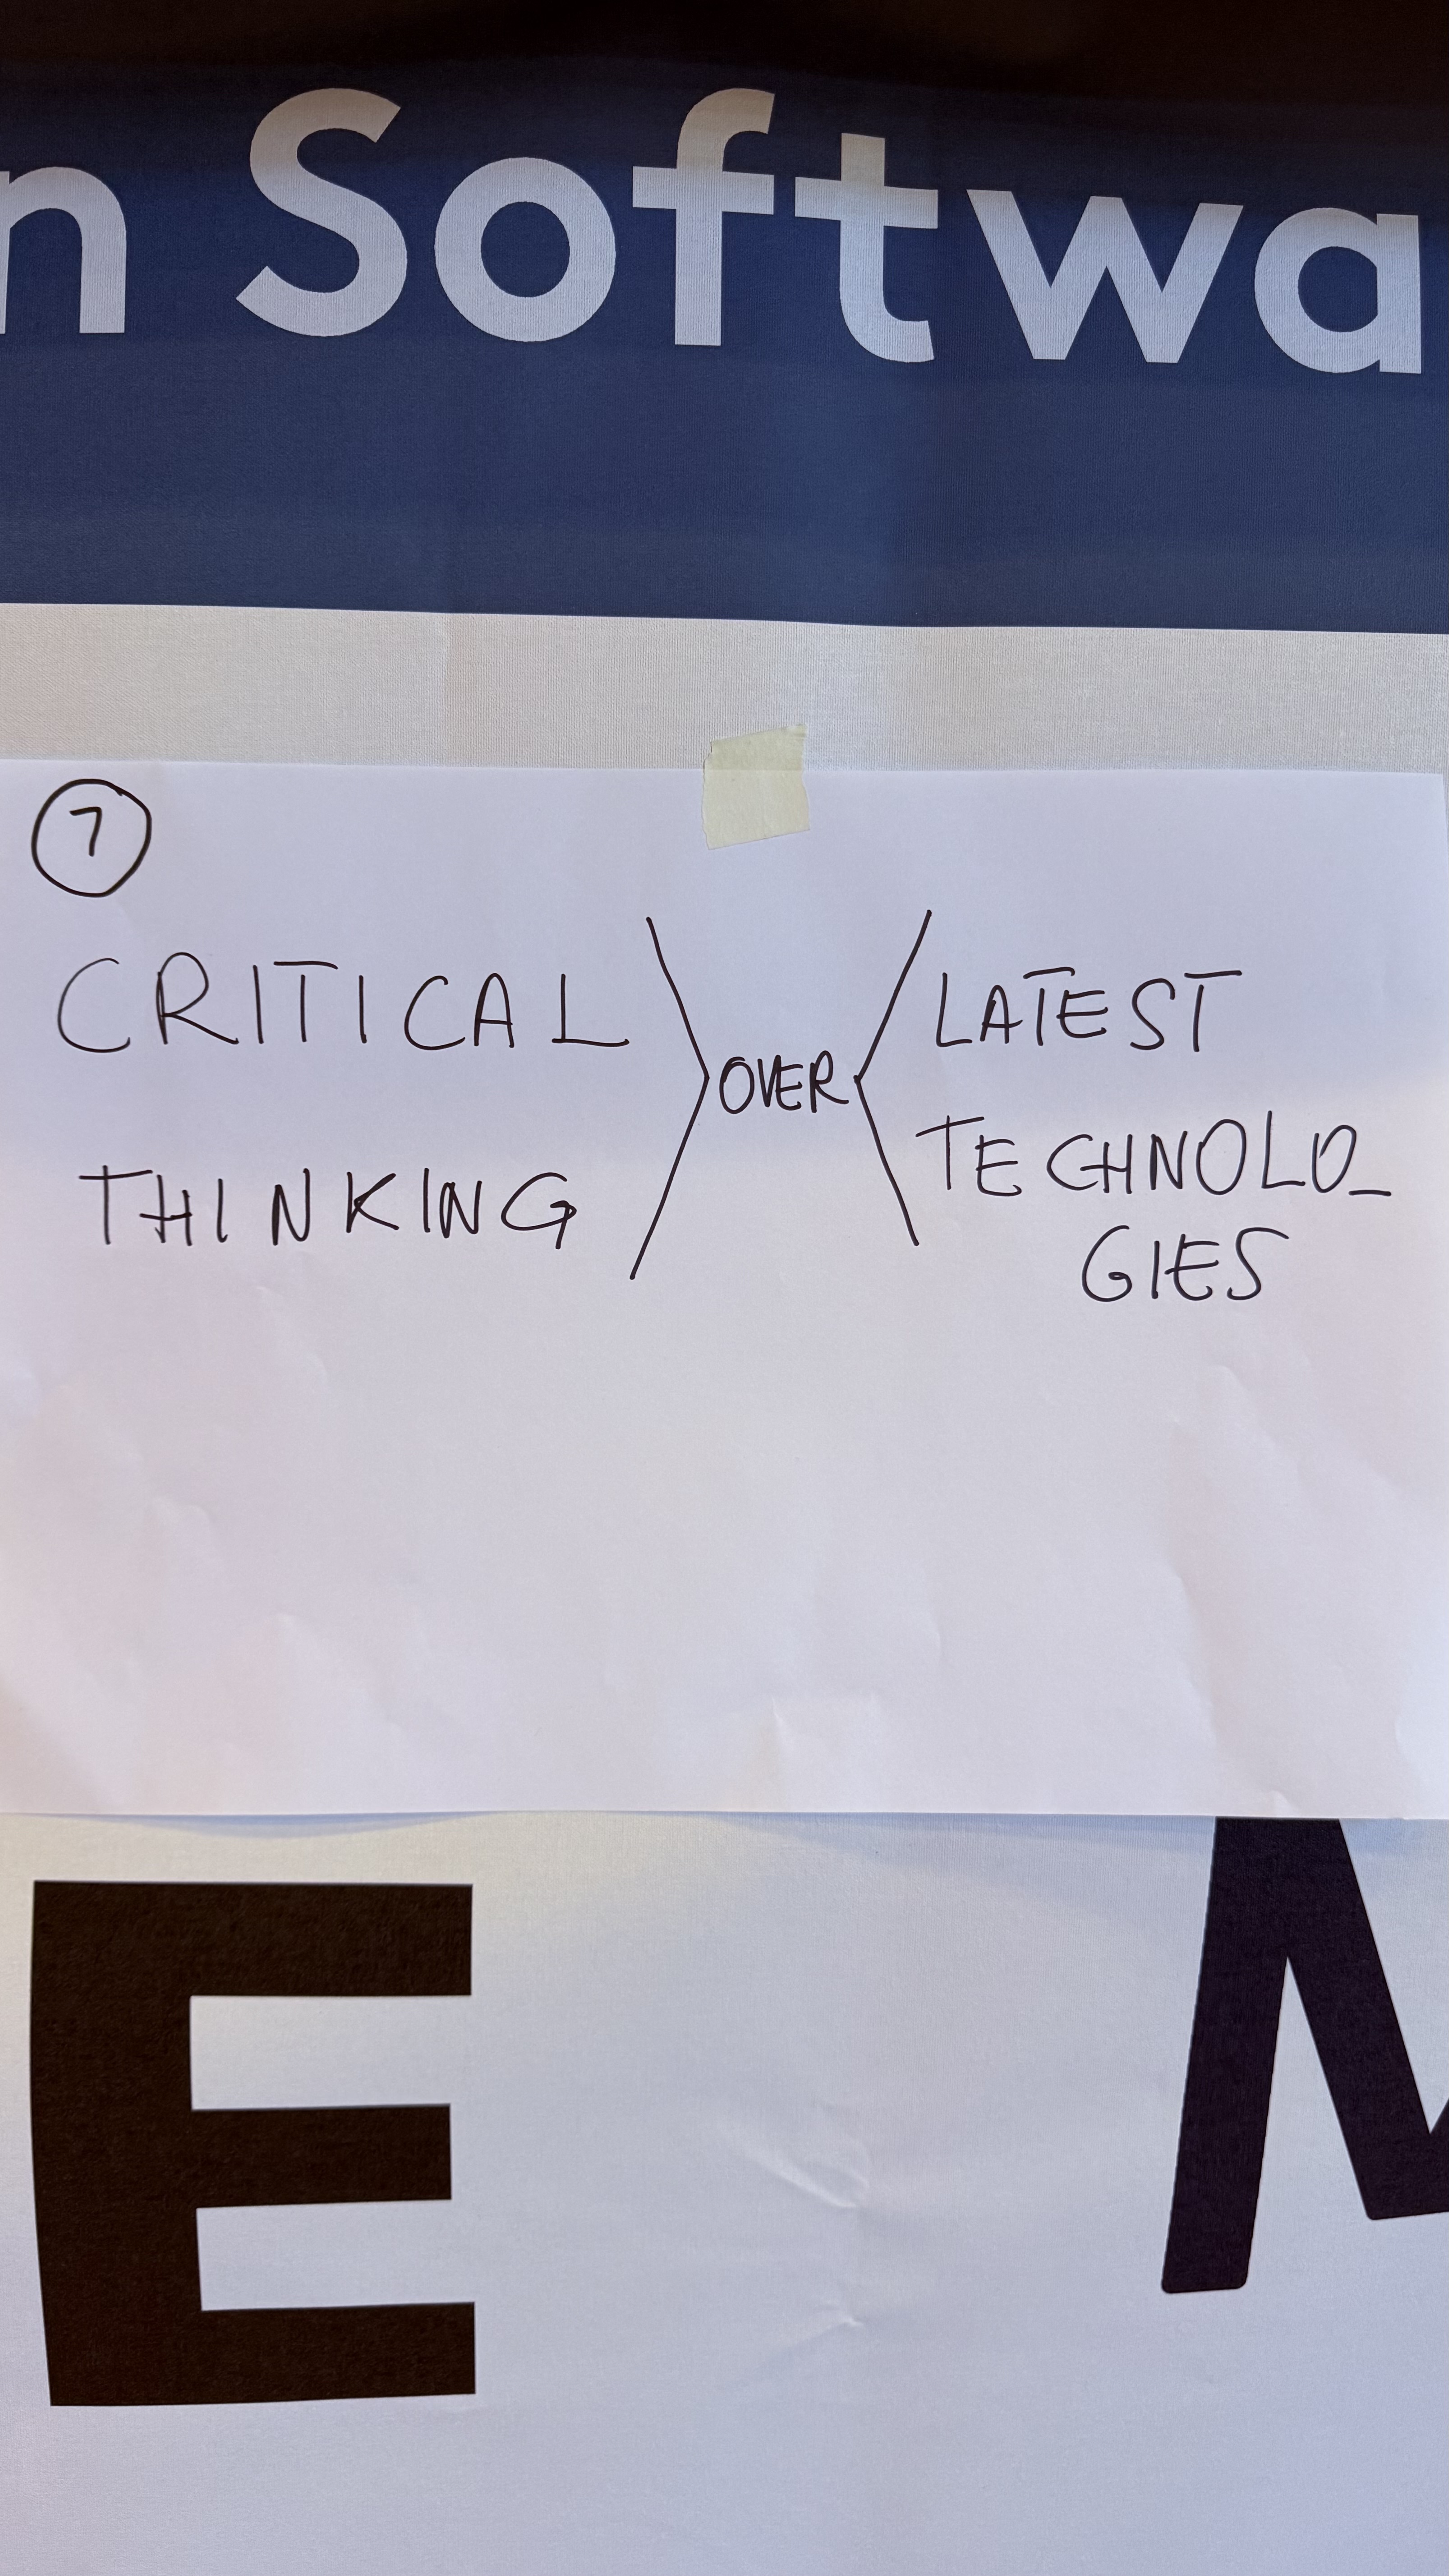 n Softwa
7
CRITICAL
THINKING
OVER
LATEST
TECHNOLO_
GIES
E M